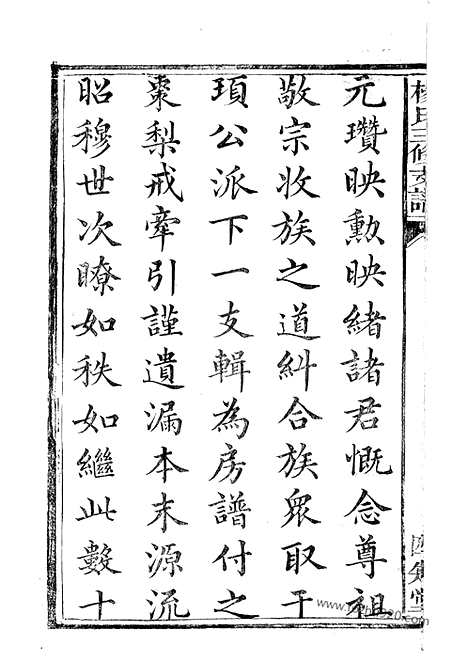 楊氏三修支譜
四知堂
元瓚映勳映緒諸君慨念尊祖
敬宗收族之道糾合族眾取于
頊公派下一支輯為房譜付之
棗梨戒牽引謹遺漏本末源流
昭穆世次瞭如秩如繼此數十